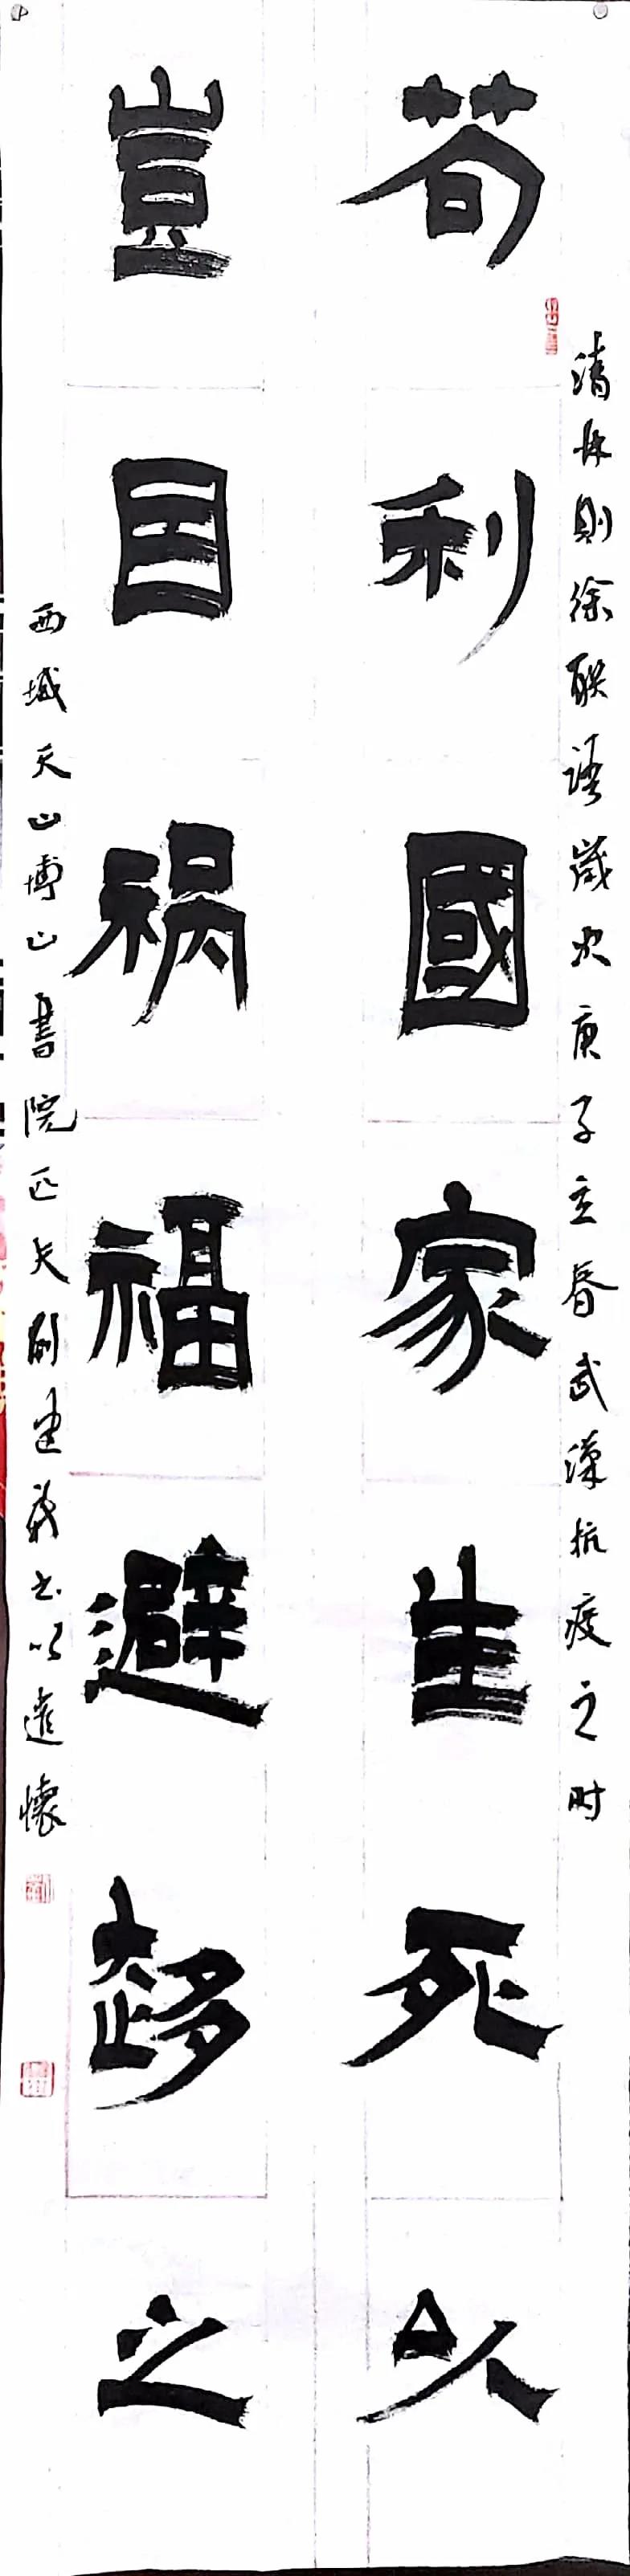 清林則徐联語歲次庚子立春武漢抗疫之时
苟利國家生死以
豈因祸福避趍之
西域天山博山書院匹夫劉建義书以遣懷